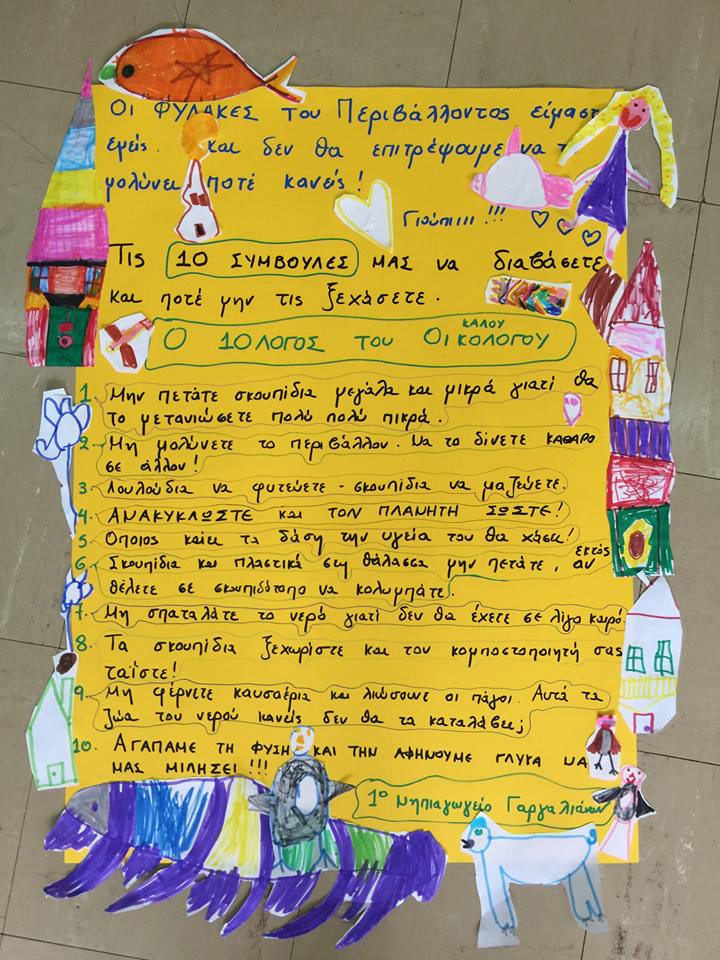 Οι ΦΥΛΑΚΕΣ του Περιβάλλοντος είμαστ
εμείς. και δεν θα επιτρέψουμε να τ
μολύνει ποτέ κανείς!
Γιούπιιιι !!!
Τις 10 ΣΥΜΒΟΥΛΕΣ ΜΑΣ να διαβάσετε
και ποτέ μην τις ξεχάσετε.
ΚΑΛΟΥ
Ο 10ΛΟΓΟΣ του ΟιΚΟΛΟΓΟΥ
1. Μην πετάτε σκουπίδια μεγάλα και μικρά γιατί θα
το μετανιώσετε πολύ πολύ πικρά.
2. Μη μολύνετε το περιβάλλον. Να το δίνετε ΚΑΘΑΡΟ
σε άλλον!
3. Λουλούδια να φυτεύετε - σκουπίδια να μαζεύετε.
4. ΑΝΑΚΥΚΛΩΣΤΕ και τον ΠΛΑΝΗΤΗ ΣΩΣΤΕ!
5. Όποιος καίει τα δάση την υγεία του θα χάσει!
εκτός
6. Σκουπίδια και πλαστικά στη θάλασσα μην πετάτε, αν
θέλετε σε σκουπιδότοπο να κολυμπάτε.
7. Μη σπαταλάτε το νερό γιατί δεν θα έχετε σε λίγο καιρό.
8. Τα σκουπίδια ξεχωρίστε και τον κομποστοποιητή σας
ταΐστε!
9. Μη φέρνετε καυσαέρια και λιώσουνε οι πάγοι. Αυτά τα
ζώα του νερού κανείς δεν θα τα καταλάβει;
10. ΑΓΑΠΑΜΕ ΤΗ ΦΥΣΗ ΚΑΙ ΤΗΝ ΑΦΗΝΟΥΜΕ ΓΛΥΚΑ ΝΑ
ΜΑΣ ΜΙΛΗΣΕΙ!!!
1ο Νηπιαγωγείο Γαργαλιάνων